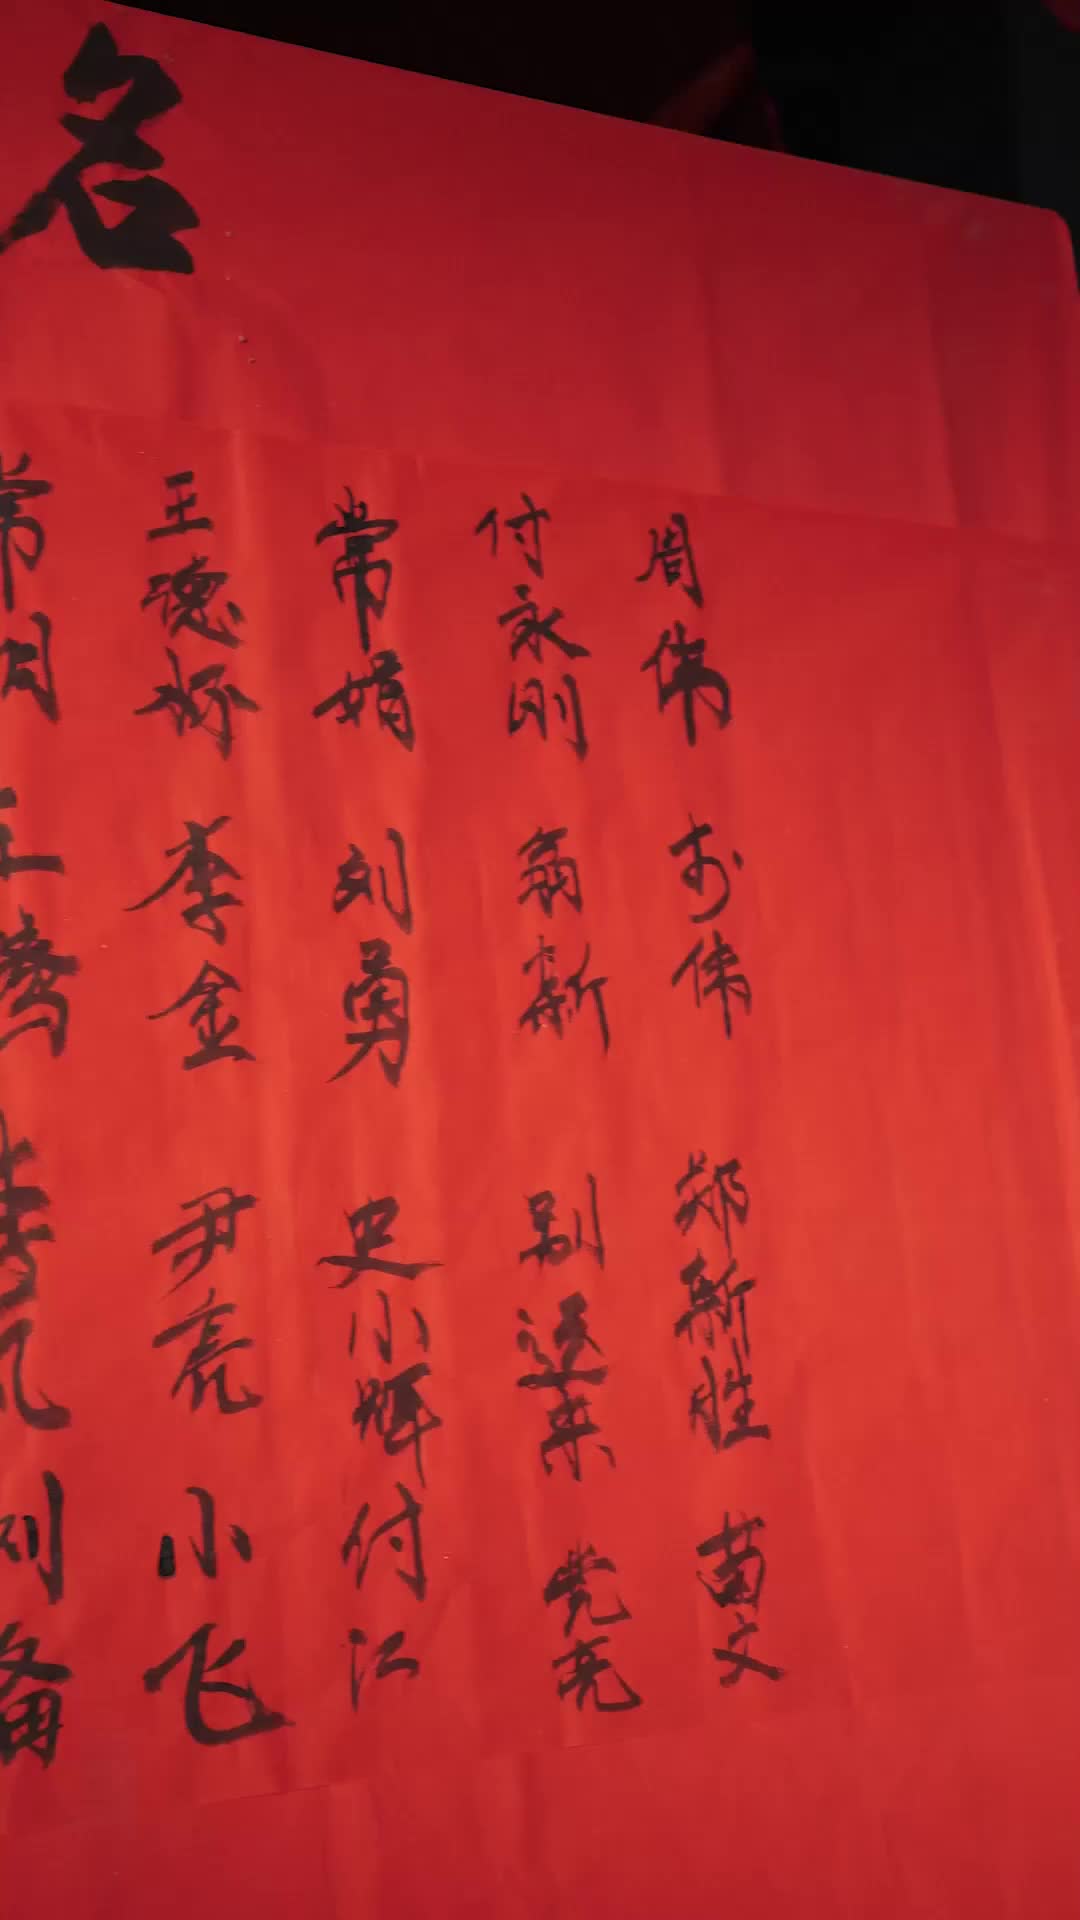 名
周伟 于伟 郑新胜 苗文
付永刚 翁新 别运来 党亮
常娟 刘勇 史小晖 付江
王德怀 李金 尹亮 小飞